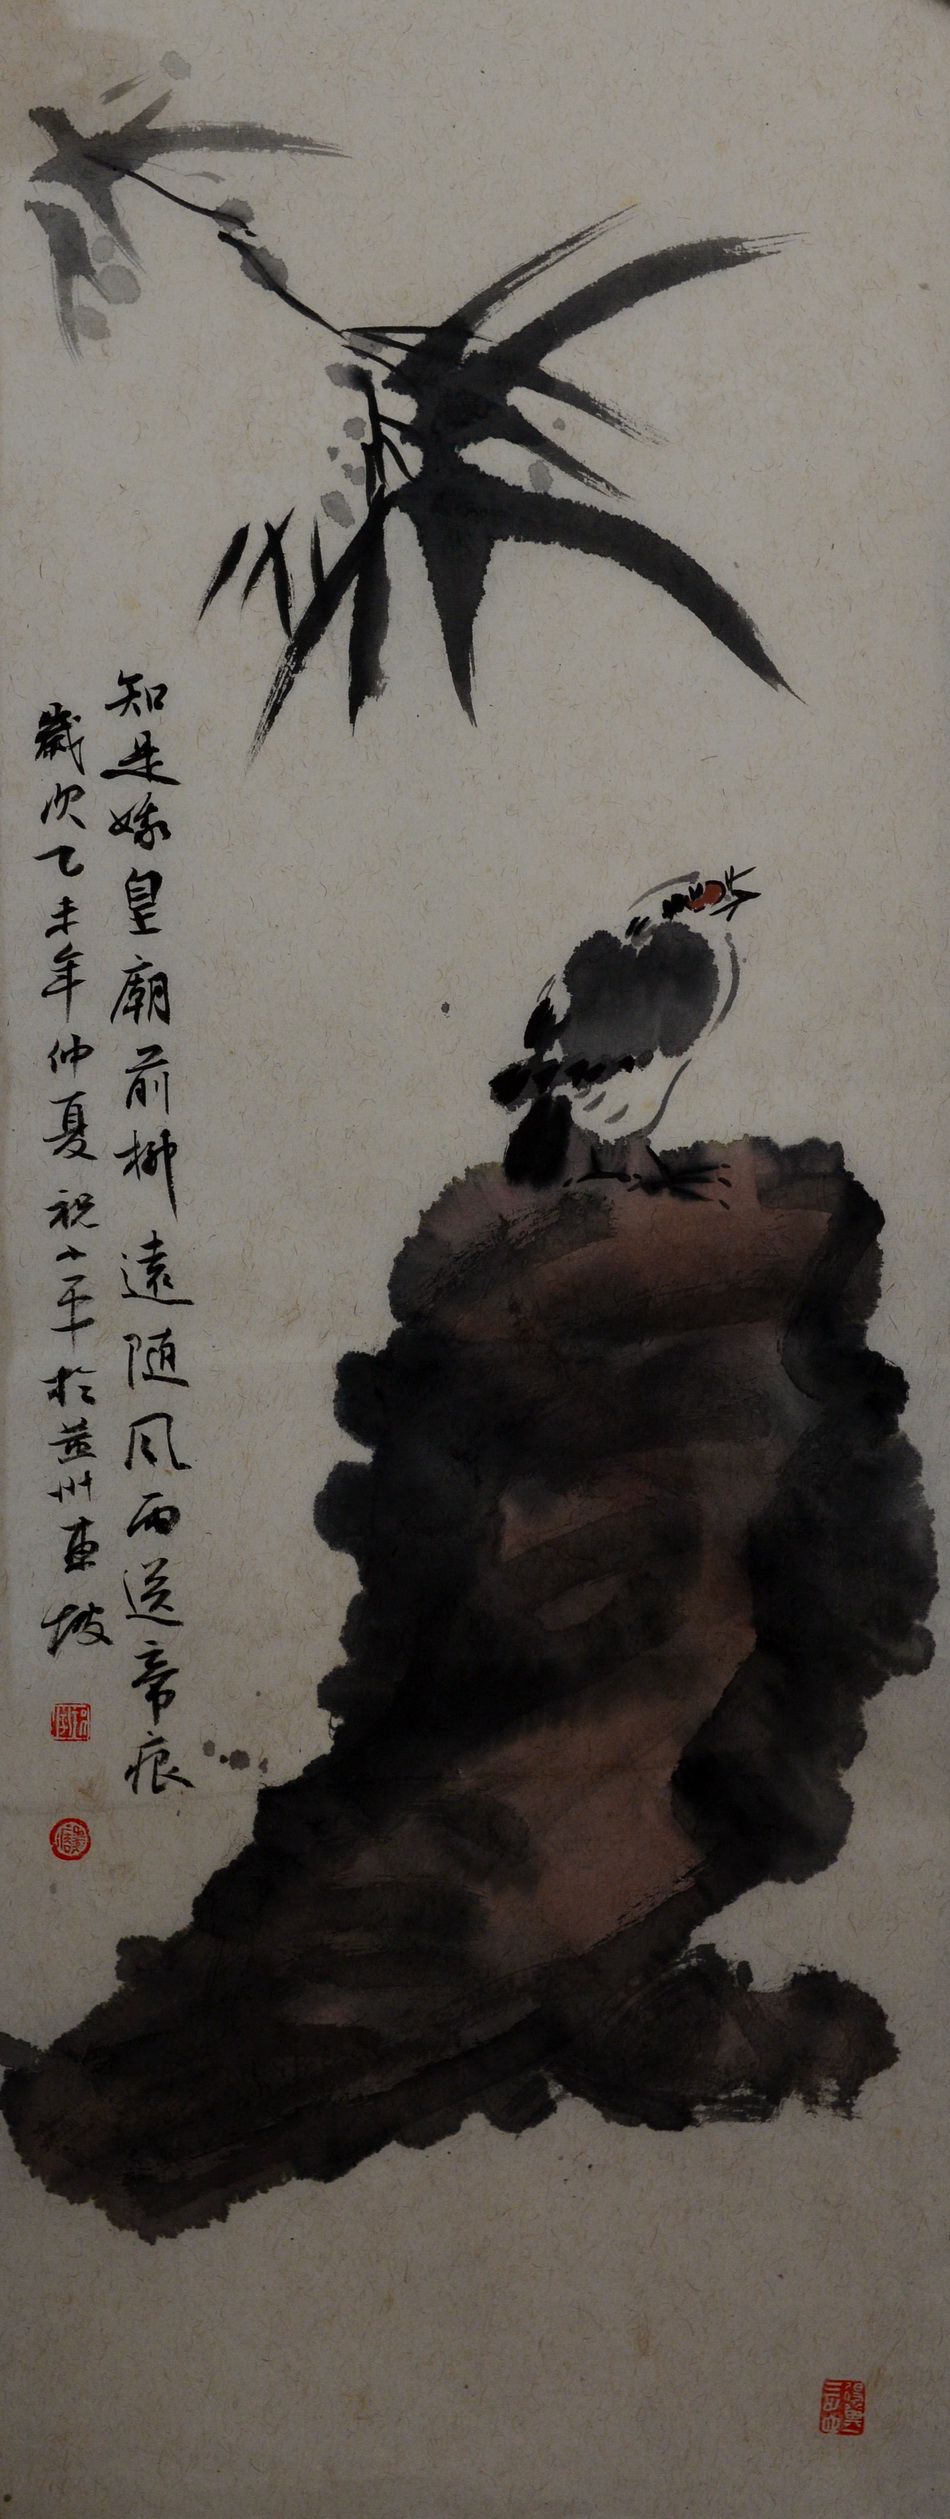 知是娥皇廟前柳遠随風雨送啼痕
歲次乙未年仲夏祝小平於益州東坡